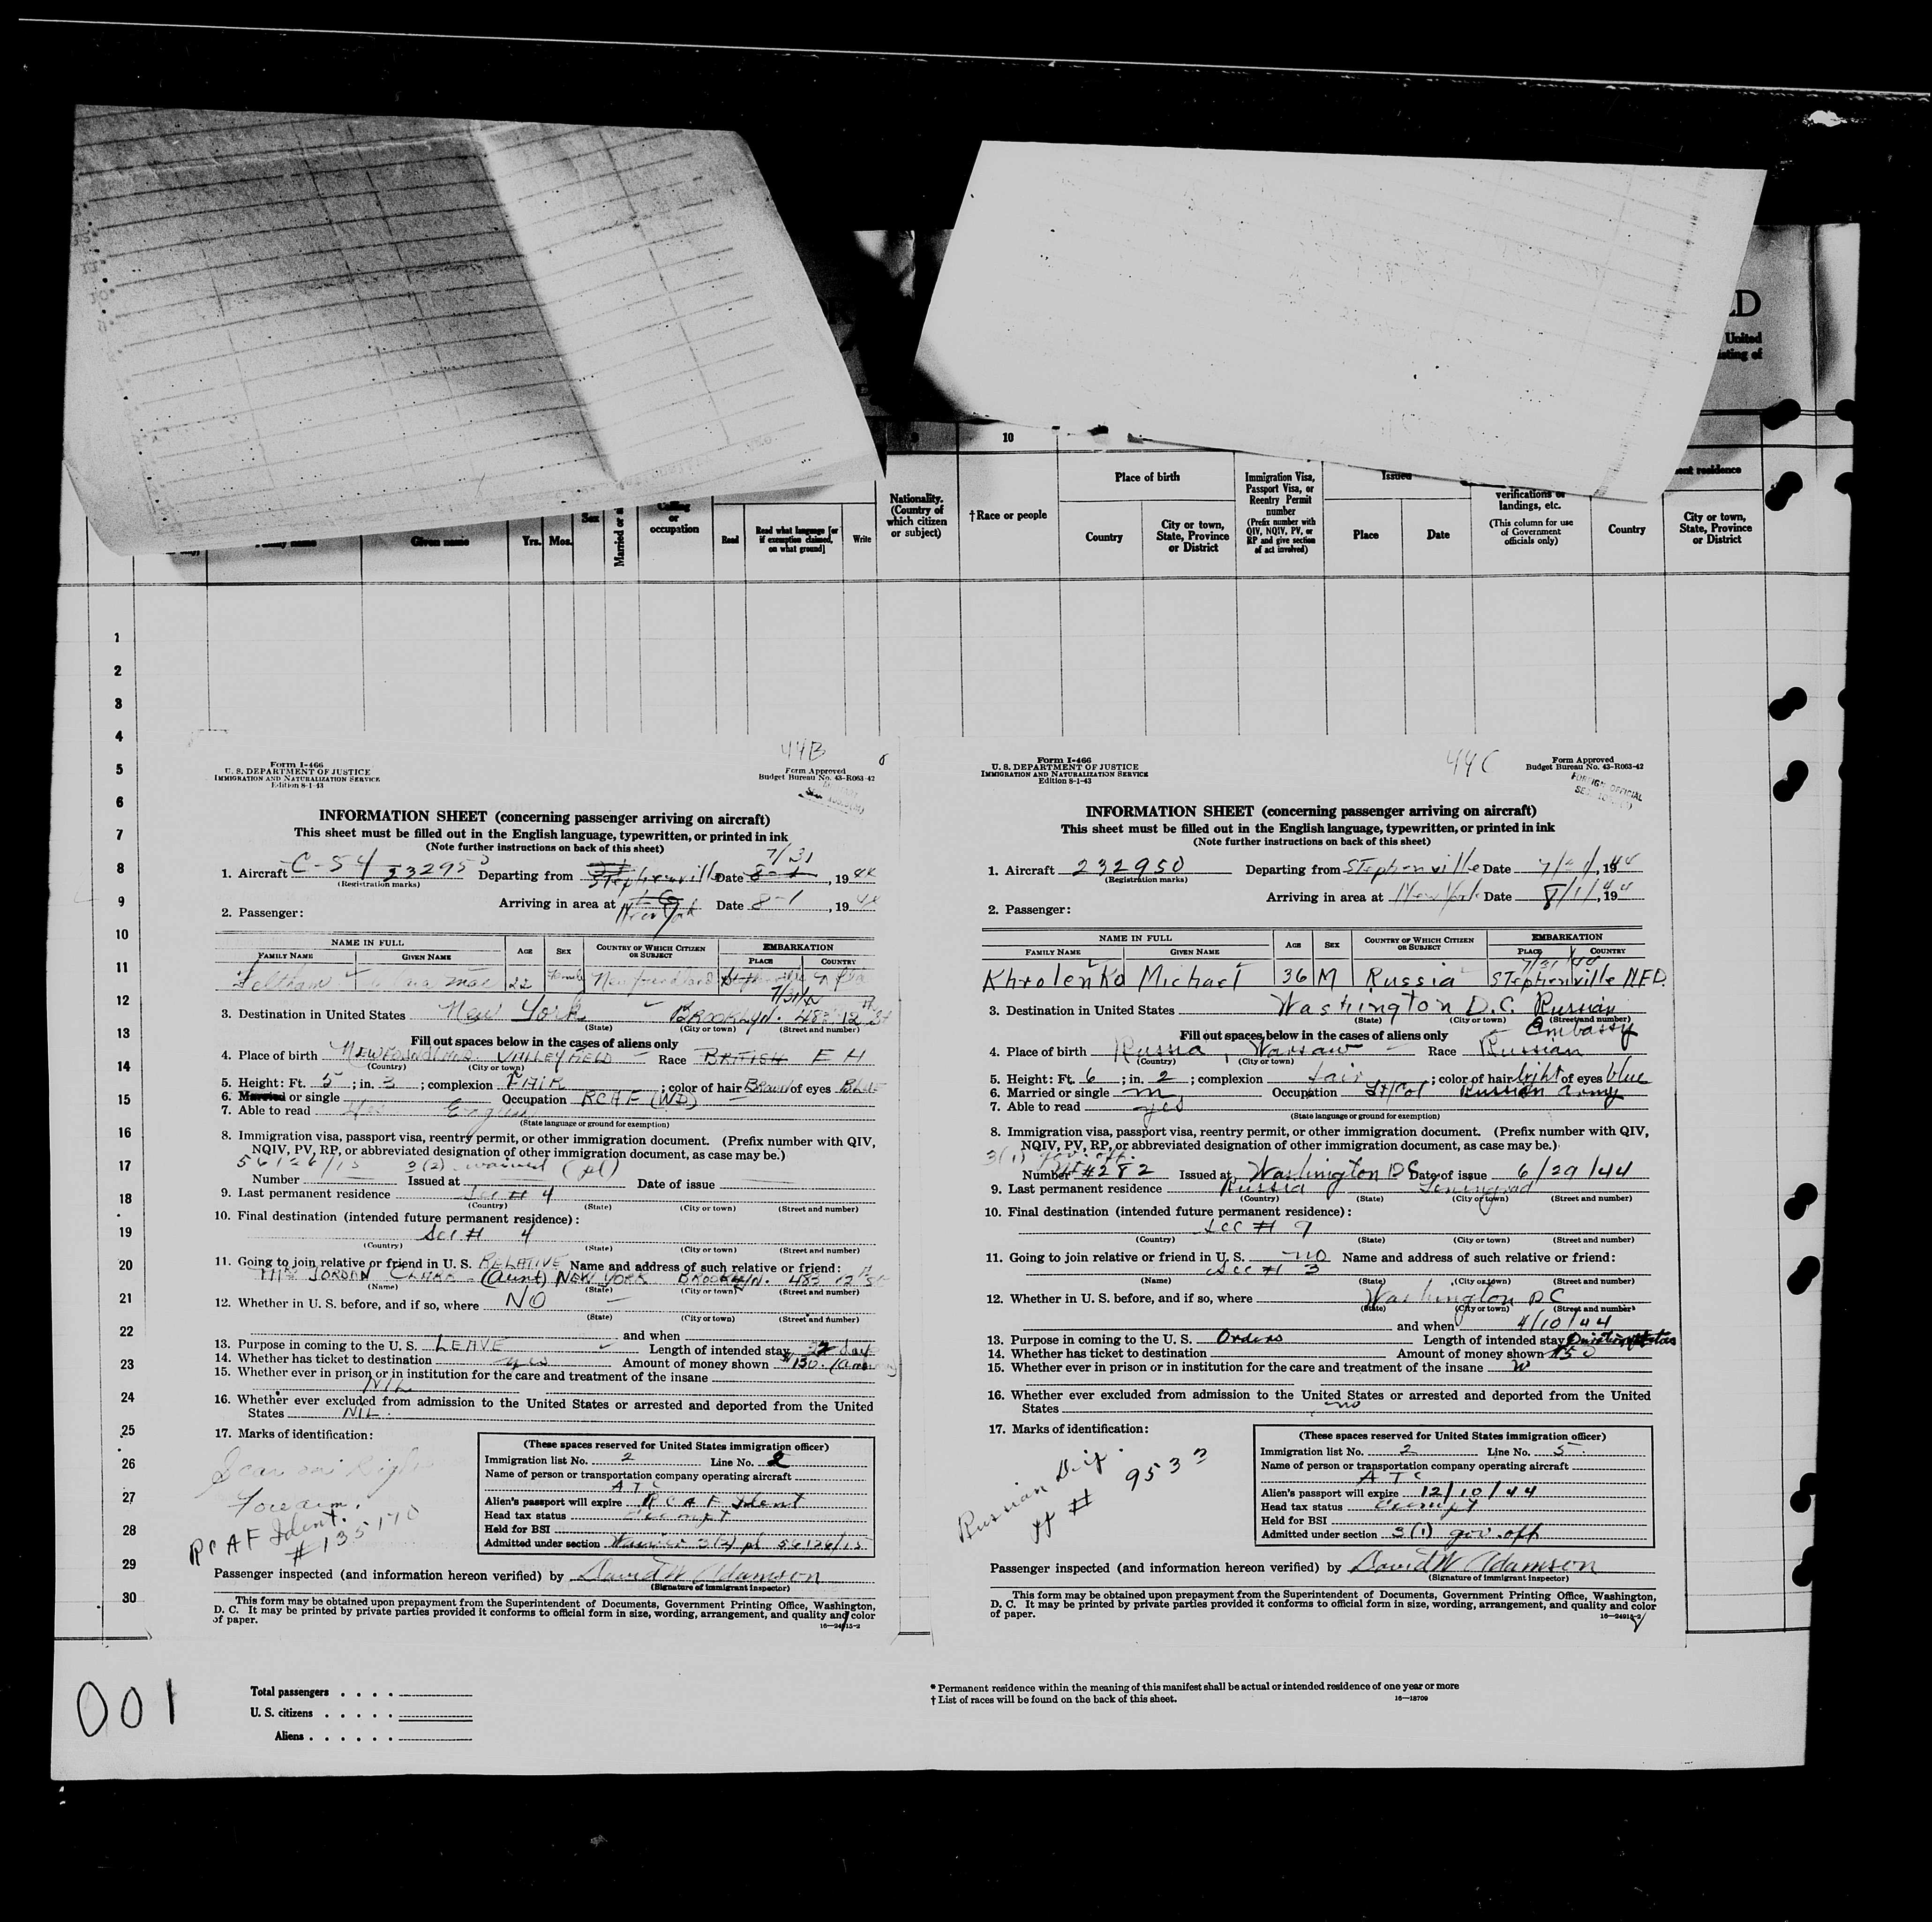 LD
United
isting of
10
ent residence
Family name
Given name
Yrs.
Mos.
Sex
Calling
or
occupation
Read
Read what language [or
if exemption claimed,
on what ground]
Write
Nationality.
(Country of
which citizen
or subject)
†Race or people
Place of birth
Country
City or town,
State, Province
or District
Immigration Visa,
Passport Visa, or
Reentry Permit
number
(Prefix number with
QIV, NQIV, PV, or
RP and give section
of act involved)
Issued
Place
Date
verifications of
landings, etc.
(This column for use
of Government
officials only)
Country
City or town,
State, Province
or District
1
2
3
4
5
6
7
8
9
10
11
12
13
14
15
16
17
18
19
20
21
22
23
24
25
26
27
28
29
30
44B
Form I-466
U. S. DEPARTMENT OF JUSTICE
IMMIGRATION AND NATURALIZATION SERVICE
Edition 8-1-43
Form Approved
Budget Bureau No. 43-R063-42
INFORMATION SHEET (concerning passenger arriving on aircraft)
This sheet must be filled out in the English language, typewritten, or printed in ink
(Note further instructions on back of this sheet)
7/31
1. Aircraft C-54 Departing from Stephenville Date 8-1, 1944
(Registration marks)
Arriving in area at New York Date 8-1, 1944
2. Passenger:
NAME IN FULL
FAMILY NAME GIVEN NAME AGE SEX COUNTRY OF WHICH CITIZEN OR SUBJECT EMBARKATION
PLACE COUNTRY
Feltham Mae 22 Female Newfoundland
7/31/44
3. Destination in United States New York BROOKLYN. 483 12th St
(State) (City or town) (Street and number)
Fill out spaces below in the cases of aliens only
4. Place of birth NEWFOUNDLAND. VALLEYFIELD Race BRITISH E H
(Country) (City or town)
5. Height: Ft. 5; in. 3; complexion FAIR; color of hair Brown of eyes Blue
6. Married or single Occupation RCAF (WD)
7. Able to read Yes English
(State language or ground for exemption)
8. Immigration visa, passport visa, reentry permit, or other immigration document. (Prefix number with QIV,
NQIV, PV, RP, or abbreviated designation of other immigration document, as case may be.)
56126/15 3(2) waived (pl)
Number Issued at Date of issue
9. Last permanent residence See # 4
(Country) (State) (City or town) (Street and number)
10. Final destination (intended future permanent residence):
See # 4
(Country) (State) (City or town) (Street and number)
11. Going to join relative or friend in U. S. RELATIVE Name and address of such relative or friend:
JORDAN CLARK (Aunt) NEW YORK BROOKLYN. 483 12th St
(Name) (State) (City or town) (Street and number)
12. Whether in U. S. before, and if so, where NO
(State) (City or town) (Street and number)
and when
13. Purpose in coming to the U. S. LEAVE Length of intended stay days
14. Whether has ticket to destination yes Amount of money shown $130.
15. Whether ever in prison or in institution for the care and treatment of the insane
NIL
16. Whether ever excluded from admission to the United States or arrested and deported from the United
States NIL.
17. Marks of identification:
Scar on Right
forearm.
RCAF Ident.
#135170
(These spaces reserved for United States immigration officer)
Immigration list No. 2 Line No. 2
Name of person or transportation company operating aircraft
ATC
Alien's passport will expire RCAF Ident
Head tax status exempt
Held for BSI
Admitted under section Waived 3(2) pl 56126/15
Passenger inspected (and information hereon verified) by David W Adamson
(Signature of immigrant inspector)
This form may be obtained upon prepayment from the Superintendent of Documents, Government Printing Office, Washington,
D. C. It may be printed by private parties provided it conforms to official form in size, wording, arrangement, and quality and color
of paper.
16—24915-2
44C
Form I-466
U. S. DEPARTMENT OF JUSTICE
IMMIGRATION AND NATURALIZATION SERVICE
Edition 8-1-43
Form Approved
Budget Bureau No. 43-R063-42
FOREIGN OFFICIAL
INFORMATION SHEET (concerning passenger arriving on aircraft)
This sheet must be filled out in the English language, typewritten, or printed in ink
(Note further instructions on back of this sheet)
1. Aircraft 232950 Departing from Stephenville Date 1944
(Registration marks)
Arriving in area at New York Date 8/1/, 1944
2. Passenger:
NAME IN FULL
FAMILY NAME GIVEN NAME AGE SEX COUNTRY OF WHICH CITIZEN OR SUBJECT EMBARKATION
PLACE COUNTRY
7/31/44
Khrolenko Michael 36 M Russia Stephenville NFD.
3. Destination in United States Washington D.C. Russian
(State) (City or town) (Street and number)
Embassy
Fill out spaces below in the cases of aliens only
4. Place of birth Russia, Warsaw Race Russian
(Country) (City or town)
5. Height: Ft. 6; in. 2; complexion fair; color of hair light of eyes blue
6. Married or single m Occupation Lt/Col Russian army
7. Able to read yes
(State language or ground for exemption)
8. Immigration visa, passport visa, reentry permit, or other immigration document. (Prefix number with QIV,
NQIV, PV, RP, or abbreviated designation of other immigration document, as case may be.)
3(1) gov. off.
Number #282 Issued at Washington DC Date of issue 6/29/44
9. Last permanent residence Russia Leningrad
(Country) (State) (City or town) (Street and number)
10. Final destination (intended future permanent residence):
See # 9
(Country) (State) (City or town) (Street and number)
11. Going to join relative or friend in U. S. no Name and address of such relative or friend:
See # 3
(Name) (State) (City or town) (Street and number)
12. Whether in U. S. before, and if so, where Washington DC
(State) (City or town) (Street and number)
and when 4/10/44
13. Purpose in coming to the U. S. Orders Length of intended stay Duration of status
14. Whether has ticket to destination Amount of money shown
15. Whether ever in prison or in institution for the care and treatment of the insane
16. Whether ever excluded from admission to the United States or arrested and deported from the United
States no
17. Marks of identification:
Russian Dip.
pp # 953
(These spaces reserved for United States immigration officer)
Immigration list No. 2 Line No. 5
Name of person or transportation company operating aircraft
ATC
Alien's passport will expire 12/10/44
Head tax status exempt
Held for BSI
Admitted under section 3(1) gov. off
Passenger inspected (and information hereon verified) by David W Adamson
(Signature of immigrant inspector)
This form may be obtained upon prepayment from the Superintendent of Documents, Government Printing Office, Washington,
D. C. It may be printed by private parties provided it conforms to official form in size, wording, arrangement, and quality and color
of paper.
16—24915-2
001
Total passengers . . . .
U. S. citizens . . . . .
Aliens . . . . . .
* Permanent residence within the meaning of this manifest shall be actual or intended residence of one year or more
† List of races will be found on the back of this sheet.
16—18709